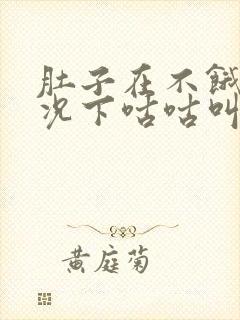 肚子在不饿
况下咕咕叫
黄庭菊